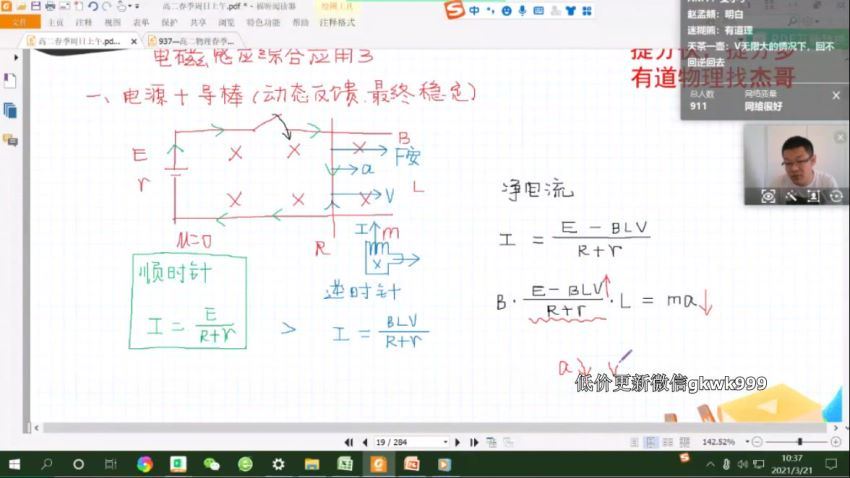 高二春季周日上午.pdf * - 福昕阅读器
绘图工具
文件
主页
注释
视图
表单
保护
共享
浏览
特色功能
帮助
注释格式
高二春季周日上午.pd...
937—高二物理春季...
电磁感应综合应用3
有道物理找杰哥
一、电源+导棒(动态反馈.最终稳定)
E
r
B
F安
a
L
V
μ=0
R
I
m
顺时针
I = E/(R+r)
>
逆时针
I = BLV/(R+r)
净电流
I = (E - BLV)/(R+r)
B · (E - BLV)/(R+r) · L = ma↓
a↓ v
低价更新微信gkwk999
赵孟頫：明白
迷糊熊：有道理
天茶一壶：V无限大的情况下，回不
回逆回去
总人数
911
网络质量
网络很好
19 / 284
142.52%
中
10:37
2021/3/21